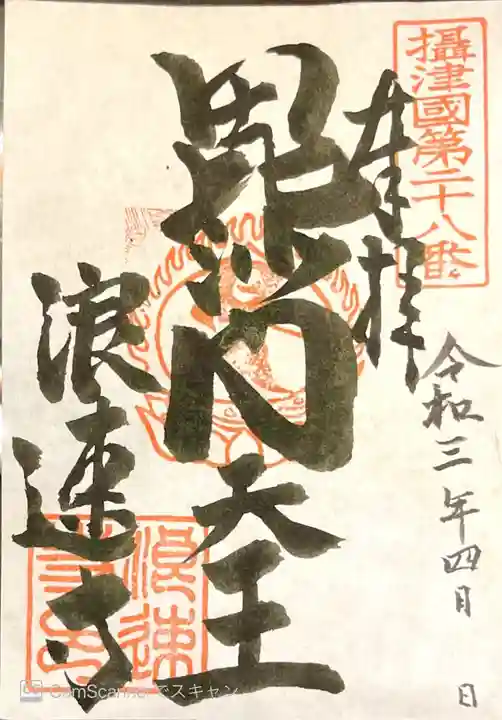 攝津國第二十八番
奉拝
令和三年四月 日
毘沙門天王
浪速寺
浪速寺印
CamScannerでスキャン